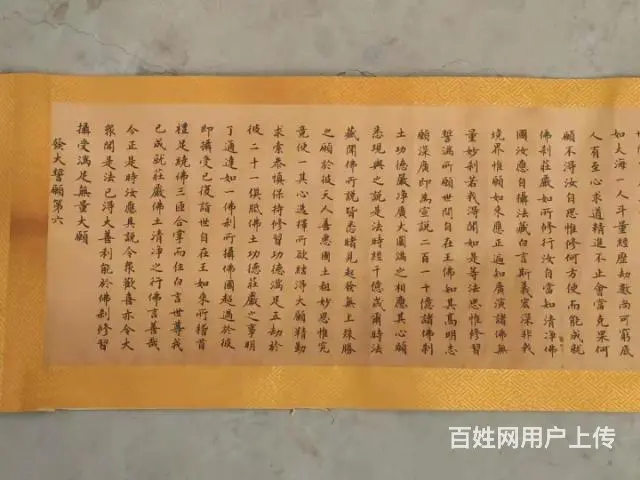 如大海一人斗量經歷劫數尚可窮底
人有至心求道精進不止會當克果何
願不得汝自思惟修何方便而能成就
佛刹莊嚴如所修行汝自當知清淨佛
國汝應自攝法藏白言斯義宏深非我
境界惟願如來應正遍知廣演諸佛無
量妙刹若我得聞如是等法思惟修習
誓滿所願世間自在王佛知其高明志
願深廣即為宣說二百一十億諸佛刹
土功德嚴淨廣大圓滿之相應其心願
悉現與之說是法時經千億歲爾時法
藏聞佛所說皆悉睹見起發無上殊勝
之願於彼天人善惡國土粗妙思惟究
竟便一其心選擇所欲結得大願精勤
求索恭慎保持修習功德滿足五劫於
彼二十一俱胝佛土功德莊嚴之事明
了通達如一佛刹所攝佛國超過於彼
即攝受已復詣世自在王如來所稽首
禮足繞佛三匝合掌而住白言世尊我
已成就莊嚴佛土清淨之行佛言善哉
今正是時汝應具說令衆歡喜亦令大
衆聞是法已得大善利能於佛刹修習
攝受滿足無量大願
發大誓願第六
百姓网用户上传